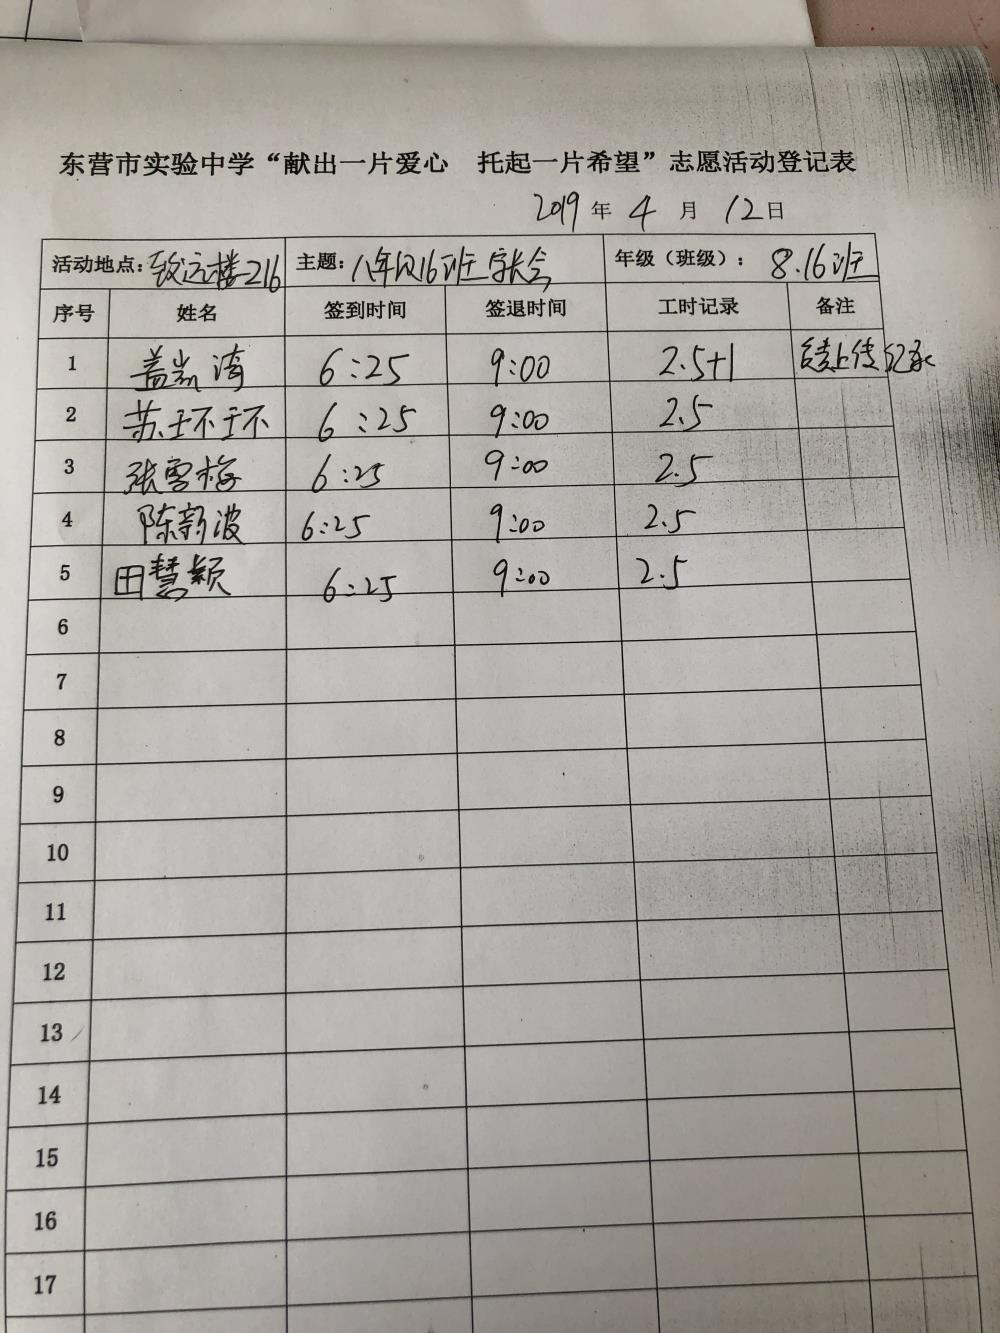 东营市实验中学“献出一片爱心 托起一片希望”志愿活动登记表
2019 年 4 月 12 日
活动地点：致远楼216 主题：八年级16班家长会 年级（班级）：8.16班
序号 姓名 签到时间 签退时间 工时记录 备注
1 盖岚漪 6:25 9:00 2.5+1 上传纪录
2 苏环环 6:25 9:00 2.5
3 张雪梅 6:25 9:00 2.5
4 陈新波 6:25 9:00 2.5
5 田慧颖 6:25 9:00 2.5
6
7
8
9
10
11
12
13
14
15
16
17